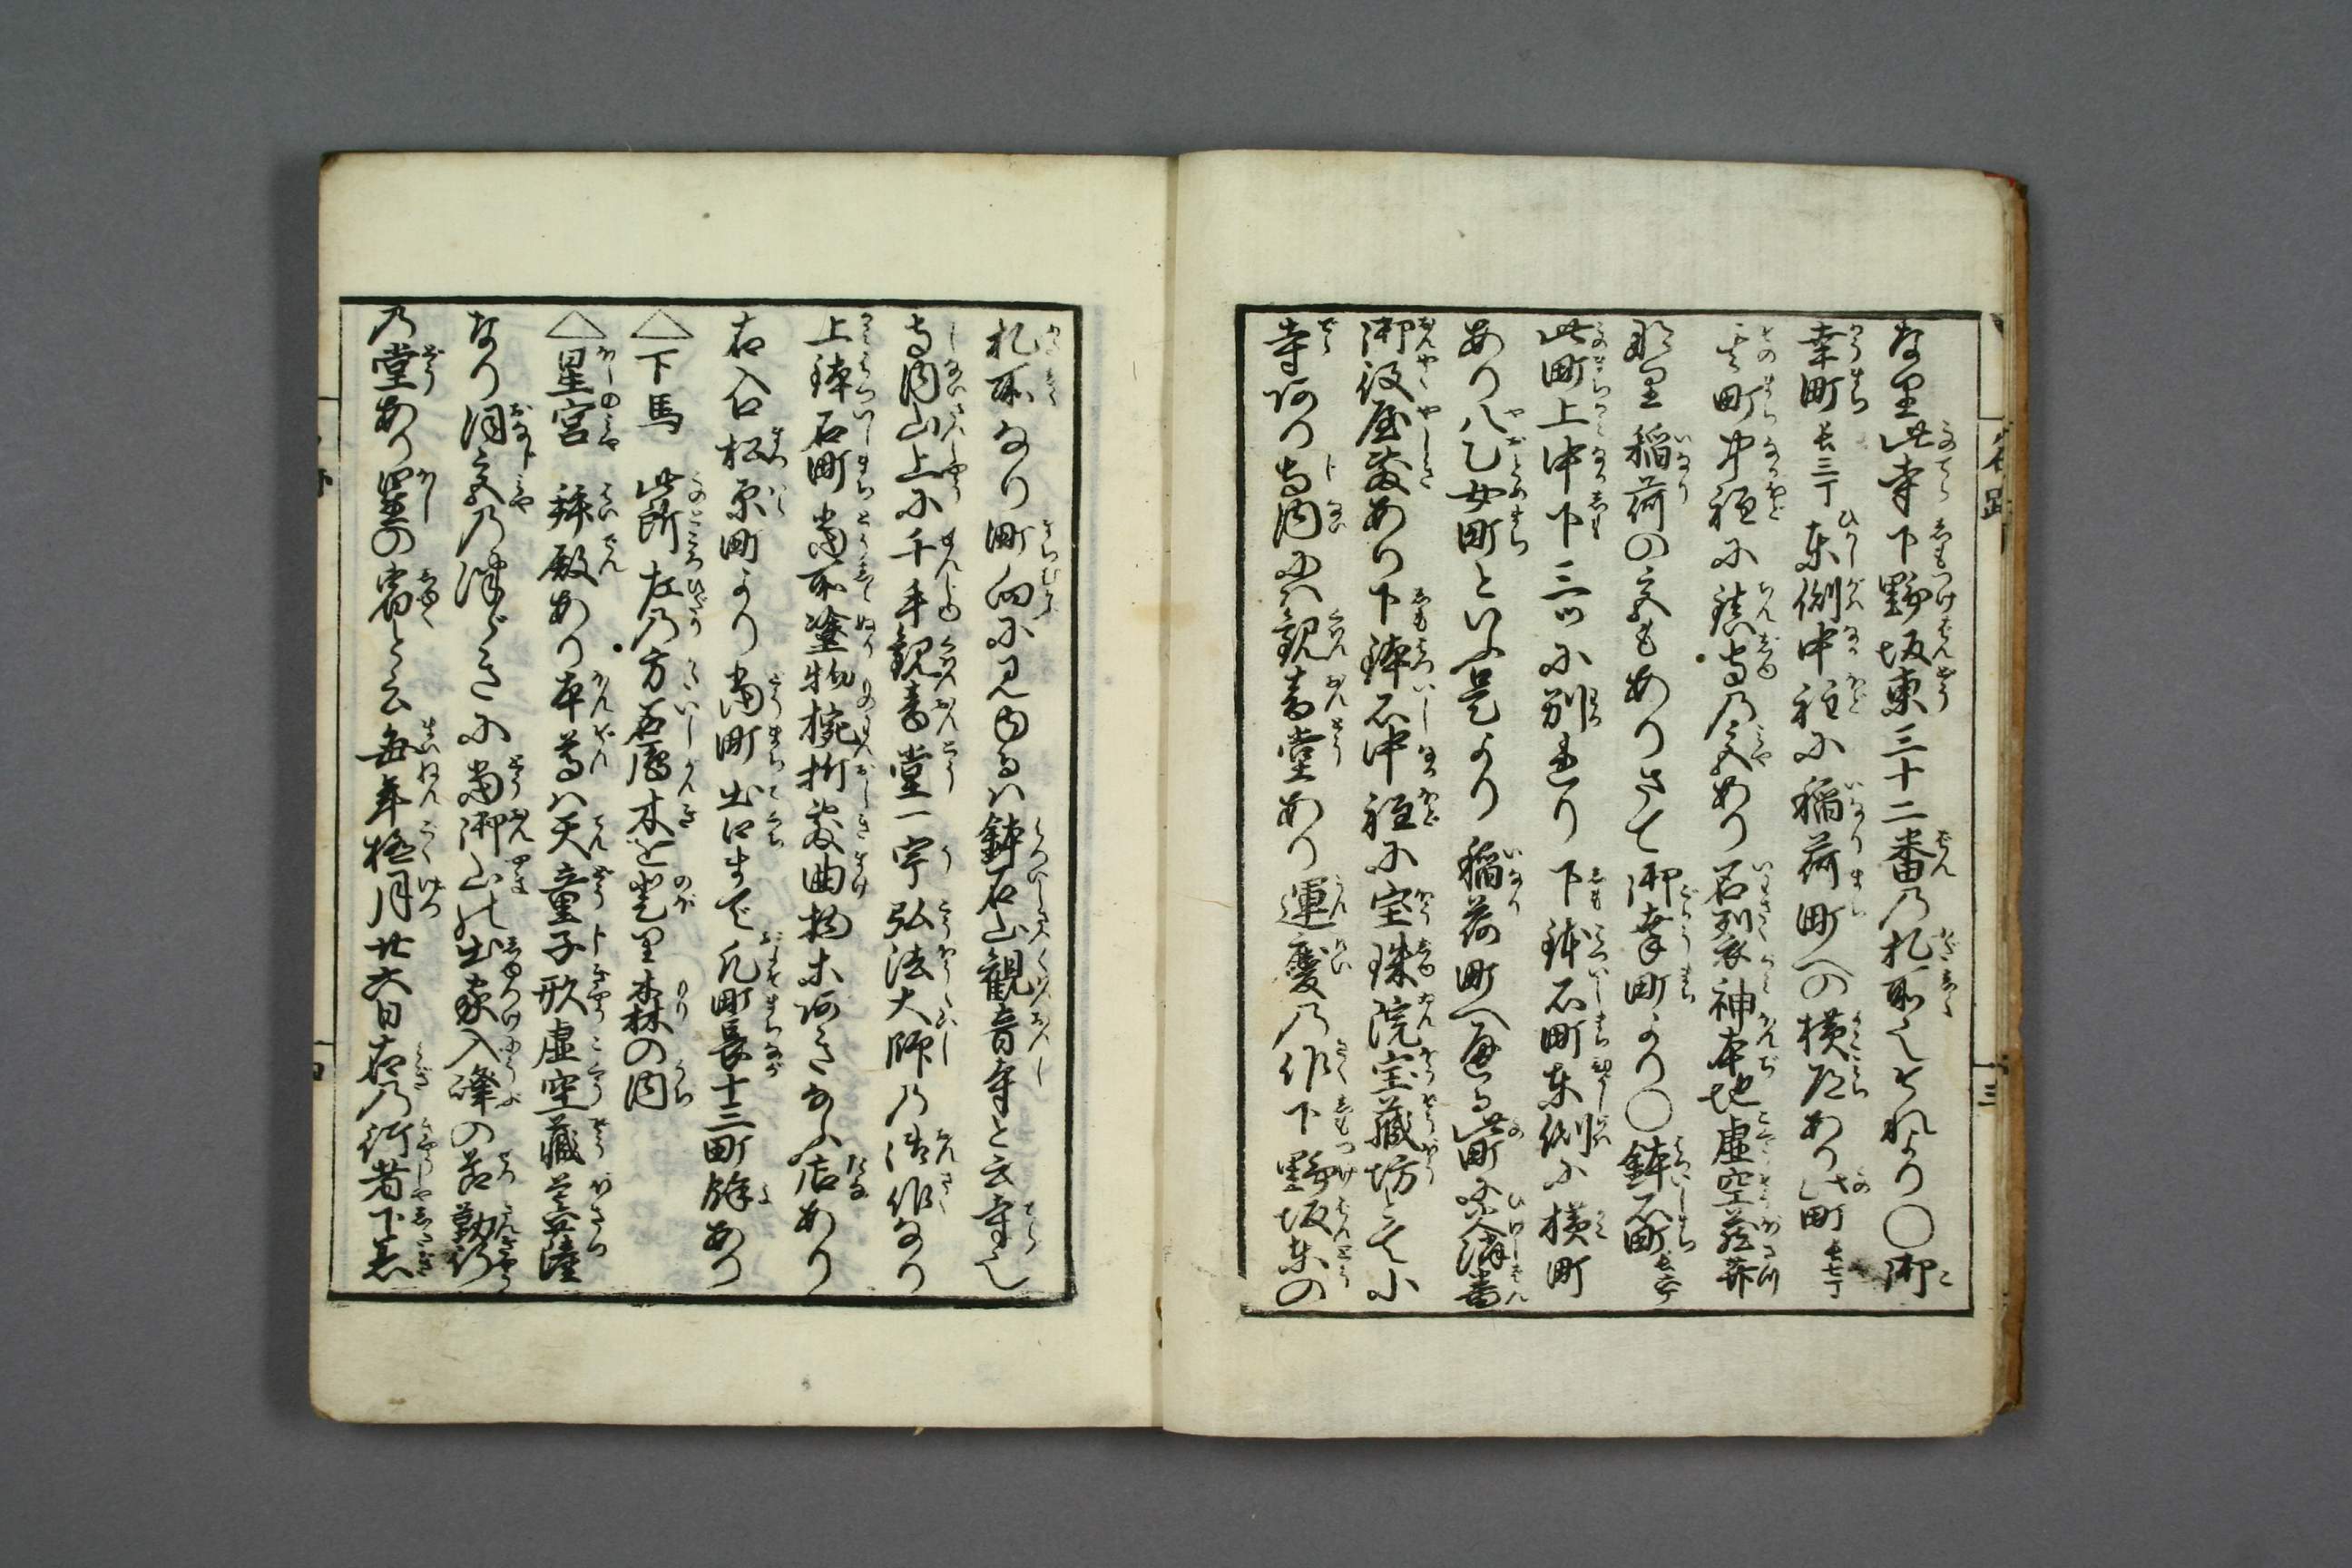 な里此寺下野坂東三十二番乃札所也それより〇御
幸町 長三丁 東側中程に稲荷町への横道あり此町 長七丁
其町中程に鎮守乃宮あり 岩裂神本地虚空蔵菩薩
稲荷の宮もありさて御幸町より〇鉢石町
此町上中下三つに別れり 下鉢石町東側に横町
あり八乙女町といふ是より稲荷町へ通る此町 火消番
御役屋敷あり下鉢石中程に宝珠院宝蔵坊とて小
寺あり寺内に観音堂あり運慶乃作下野坂東の
札所なり町向に見ゆるハ鉢石山観音寺と云寺也
寺内山上に千手観音堂一宇弘法大師乃御作なり
上鉢石町当所塗物椀折敷曲物あきなふ店あり
右入口松原町より当町出口まで凡町長十三町余あり
△下馬 此所左乃方 木を登里森の内
△星宮 拝殿あり本尊ハ天童子形虚空蔵菩薩
なり同宮乃つゞきに当御山の出家入峰の節勤行
乃堂あり星の宿と云毎年極月廿六日右乃行者下